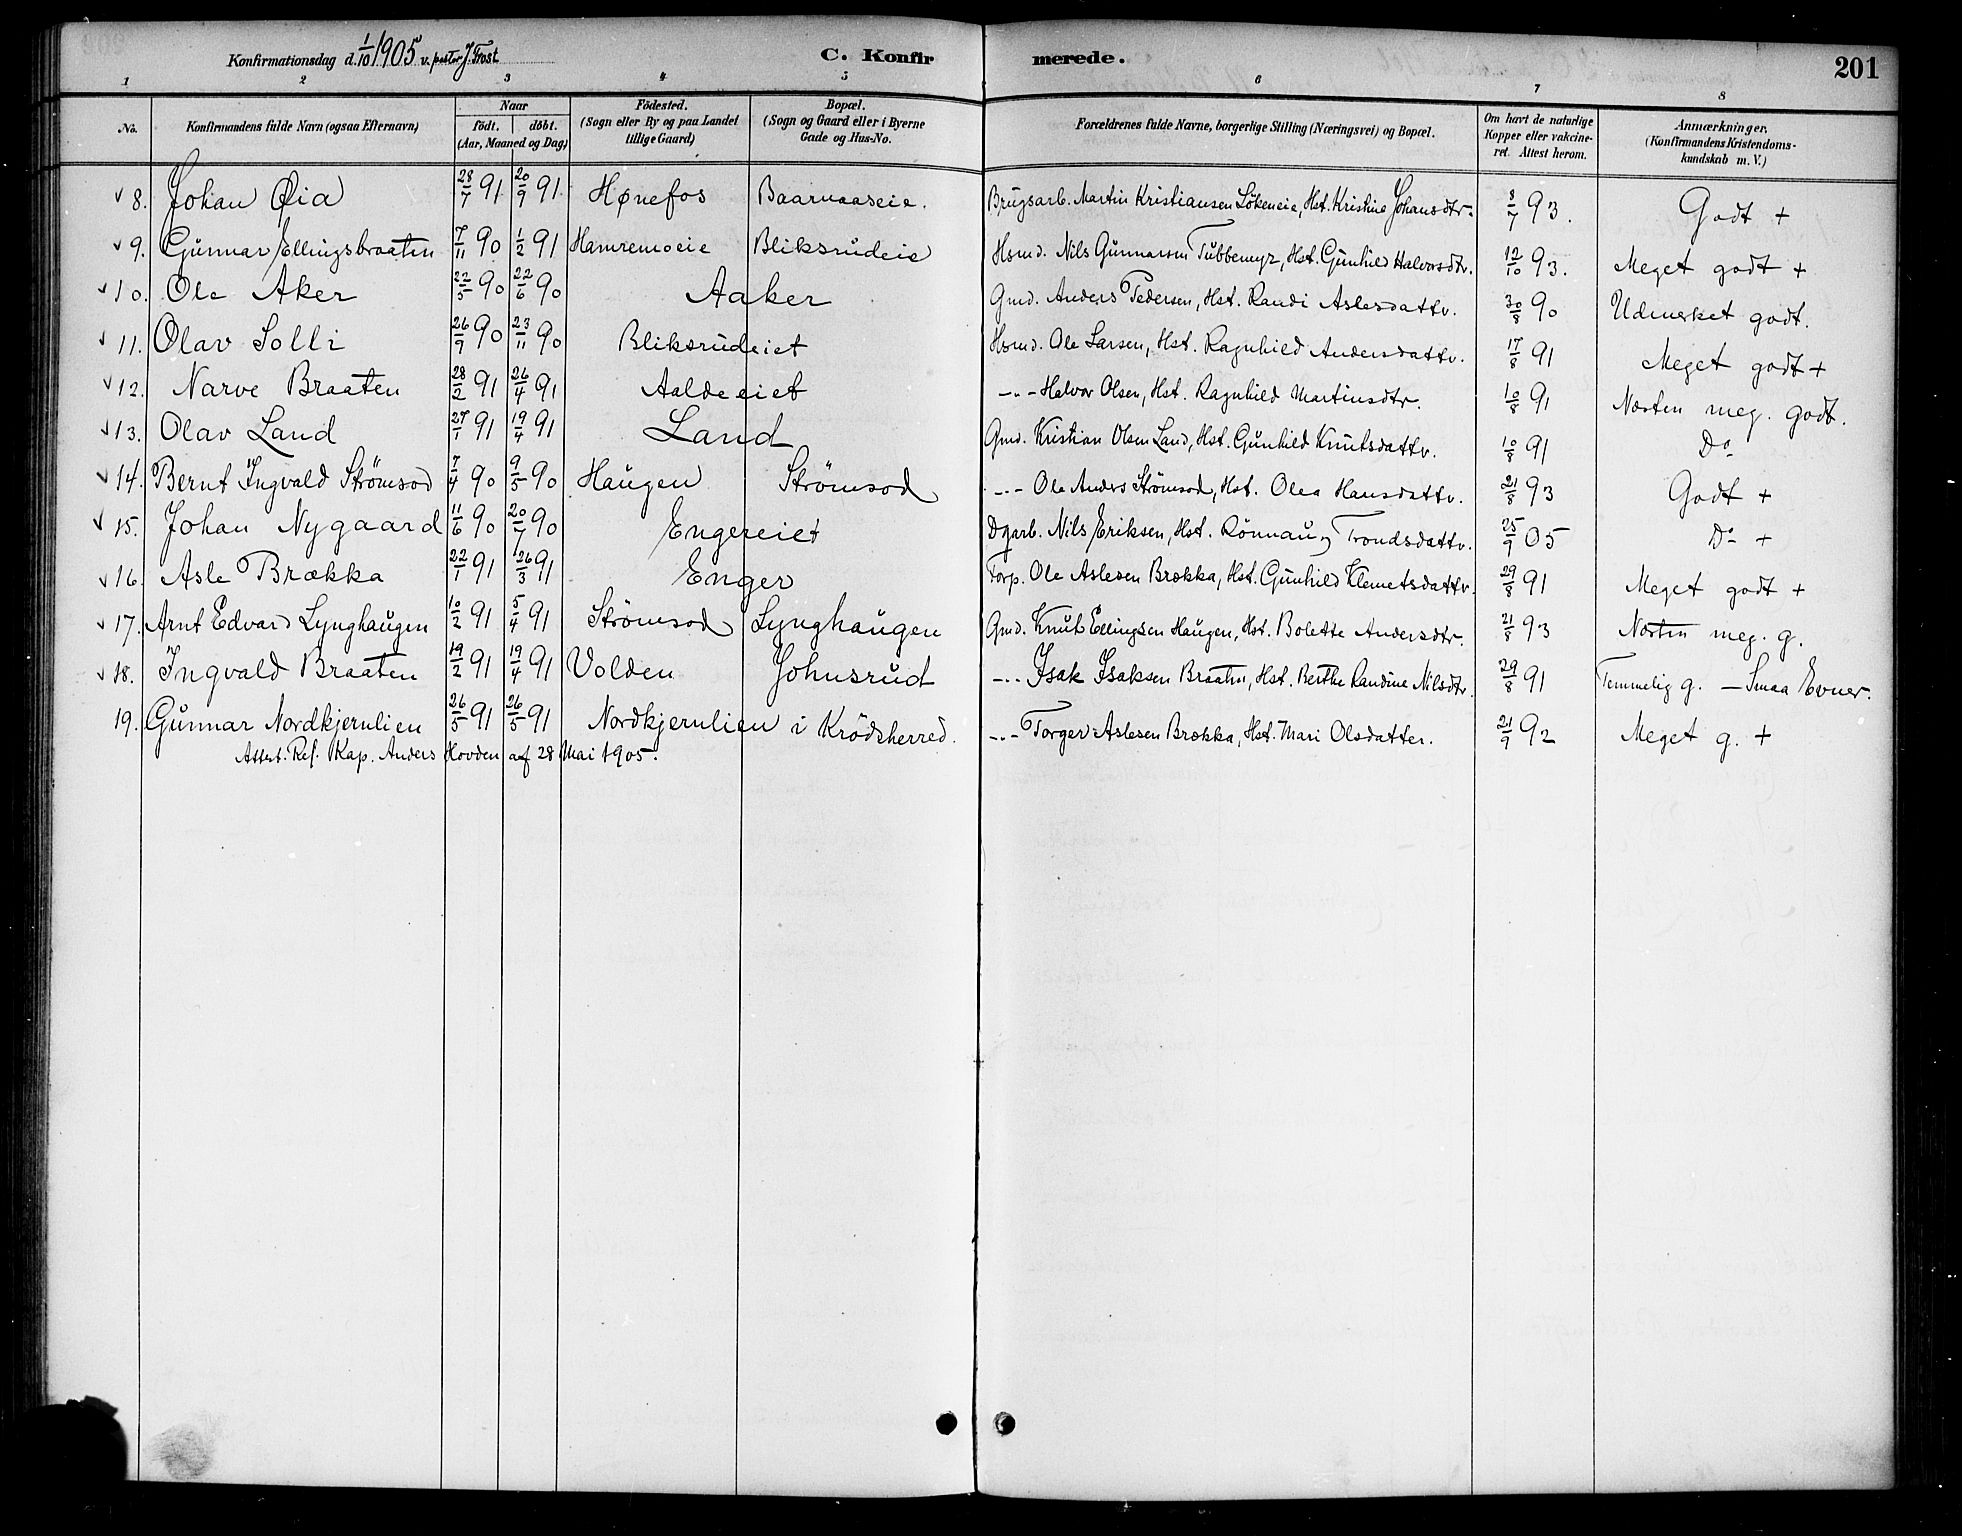 Konfirmationsdag d. 1/10 1905 v. pastor J. Frost C. Konfirmerede. 201
1 2 3 4 5 6 7 8
No. Konfirmandens fulde Navn (ogsaa Efternavn) Naar födt. | döbt. (Aar, Maaned og Dag) Födested. (Sogn eller By og paa Landet tillige Gaard) Bopæl. (Sogn og Gaard eller i Byerne Gade og Hus-No. Forældrenes fulde Navne, borgerlige Stilling (Næringsvei) og Bopæl. Om havt de naturlige Kopper eller vakcineret. Attest herom. Anmærkninger. (Konfirmandens Kristendomskundskab m. V.)
8. Johan Øia 28/7 91 20/9 91 Hønefos Baarnaaseie. Brugsarb. Martin Kristiansen Lökeneie, Hst. Kristine Johansdtr. 8/7 93. Godt +
9. Gunnar Ellingsbraaten 7/11 90 1/2 91 Hamremoeie Bliksrudeie Hsmd. Nils Gunnarsen Tubbemyr, Hst. Gunhild Halvorsdtr. 12/10 93. Meget godt +
10. Ole Aker 22/5 90 22/6 90 Aaker Gmd. Anders Pedersen, Hst. Randi Aslesdattr. 30/8 90 Udmerket godt.
11. Olav Solli 26/9 90 23/11 90 Bliksrudeiet Hsmd. Ole Larsen, Hst. Ragnhild Andersdattr. 17/8 91 Meget godt +
12. Narve Braaten 28/2 91 26/4 91 Aaldeeiet -"- Halvor Olsen, Hst. Ragnhild Martinsdtr. 10/8 91 Næsten meg. godt.
13. Olav Land 27/1 91 19/4 91 Land Gmd. Kristian Olsen Land, Hst. Gunhild Knutsdattr. 10/8 91 Do
14. Bernt Ingvald Strömsod 7/4 90 9/5 90 Haugen Strömsod -"- Ole Anders Strömsod, Hst. Olea Hansdattr. 21/8 93 Godt +
15. Johan Nygaard 11/6 90 20/7 90 Engereiet Dgarb. Nils Eriksen, Hst. Rönnaug Trondsdattr. 25/9 05 Do +
16. Asle Brækka 22/1 91 26/3 91 Enger Torp. Ole Aslesen Brækka, Hst. Gunhild Klemetsdattr. 29/8 91 Meget godt +
17. Arnt Edvard Lynghaugen 10/2 91 5/4 91 Strömsod Lynghaugen Gmd. Knut Ellingsen Haugen, Hst. Bolette Andersdtr. 21/8 93 Næsten meg. g.
18. Ingvald Braaten 19/2 91 19/4 91 Volden Johnsrud -"- Isak Isaksen Braaten, Hst. Berthe Randine Nilsdtr. 29/8 91 Temmelig g. - Smaa Evner.
19. Gunnar Nordkjernlien 26/5 91 26/5 91 Nordkjernlien i Krödsherred. -"- Torger Aslesen Brækka, Hst. Mari Olsdatter. 21/9 92 Meget g. +
Attest. Res. Kap. Anders Hovden af 28 Mai 1905.